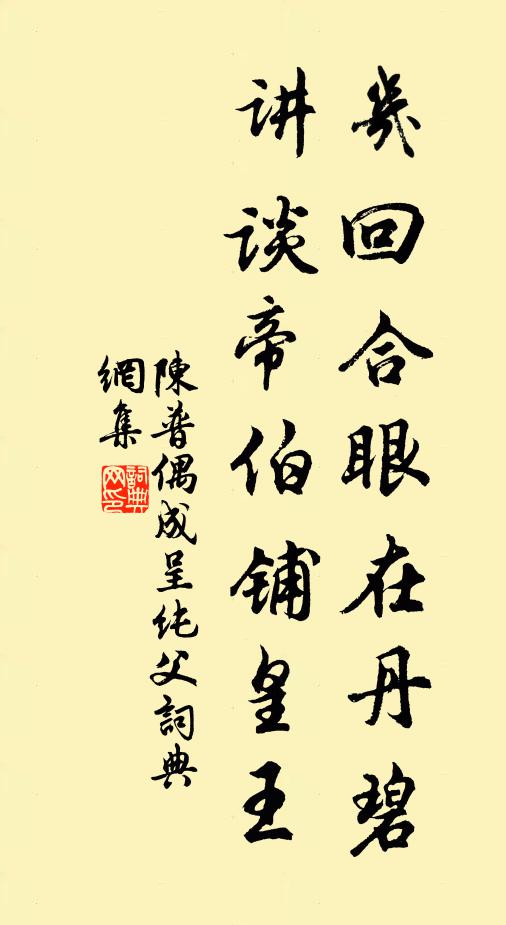 幾回合眼在丹碧
讲谈帝伯铺皇王
陳普偶成呈纯父詞典
網集
詞典
网印